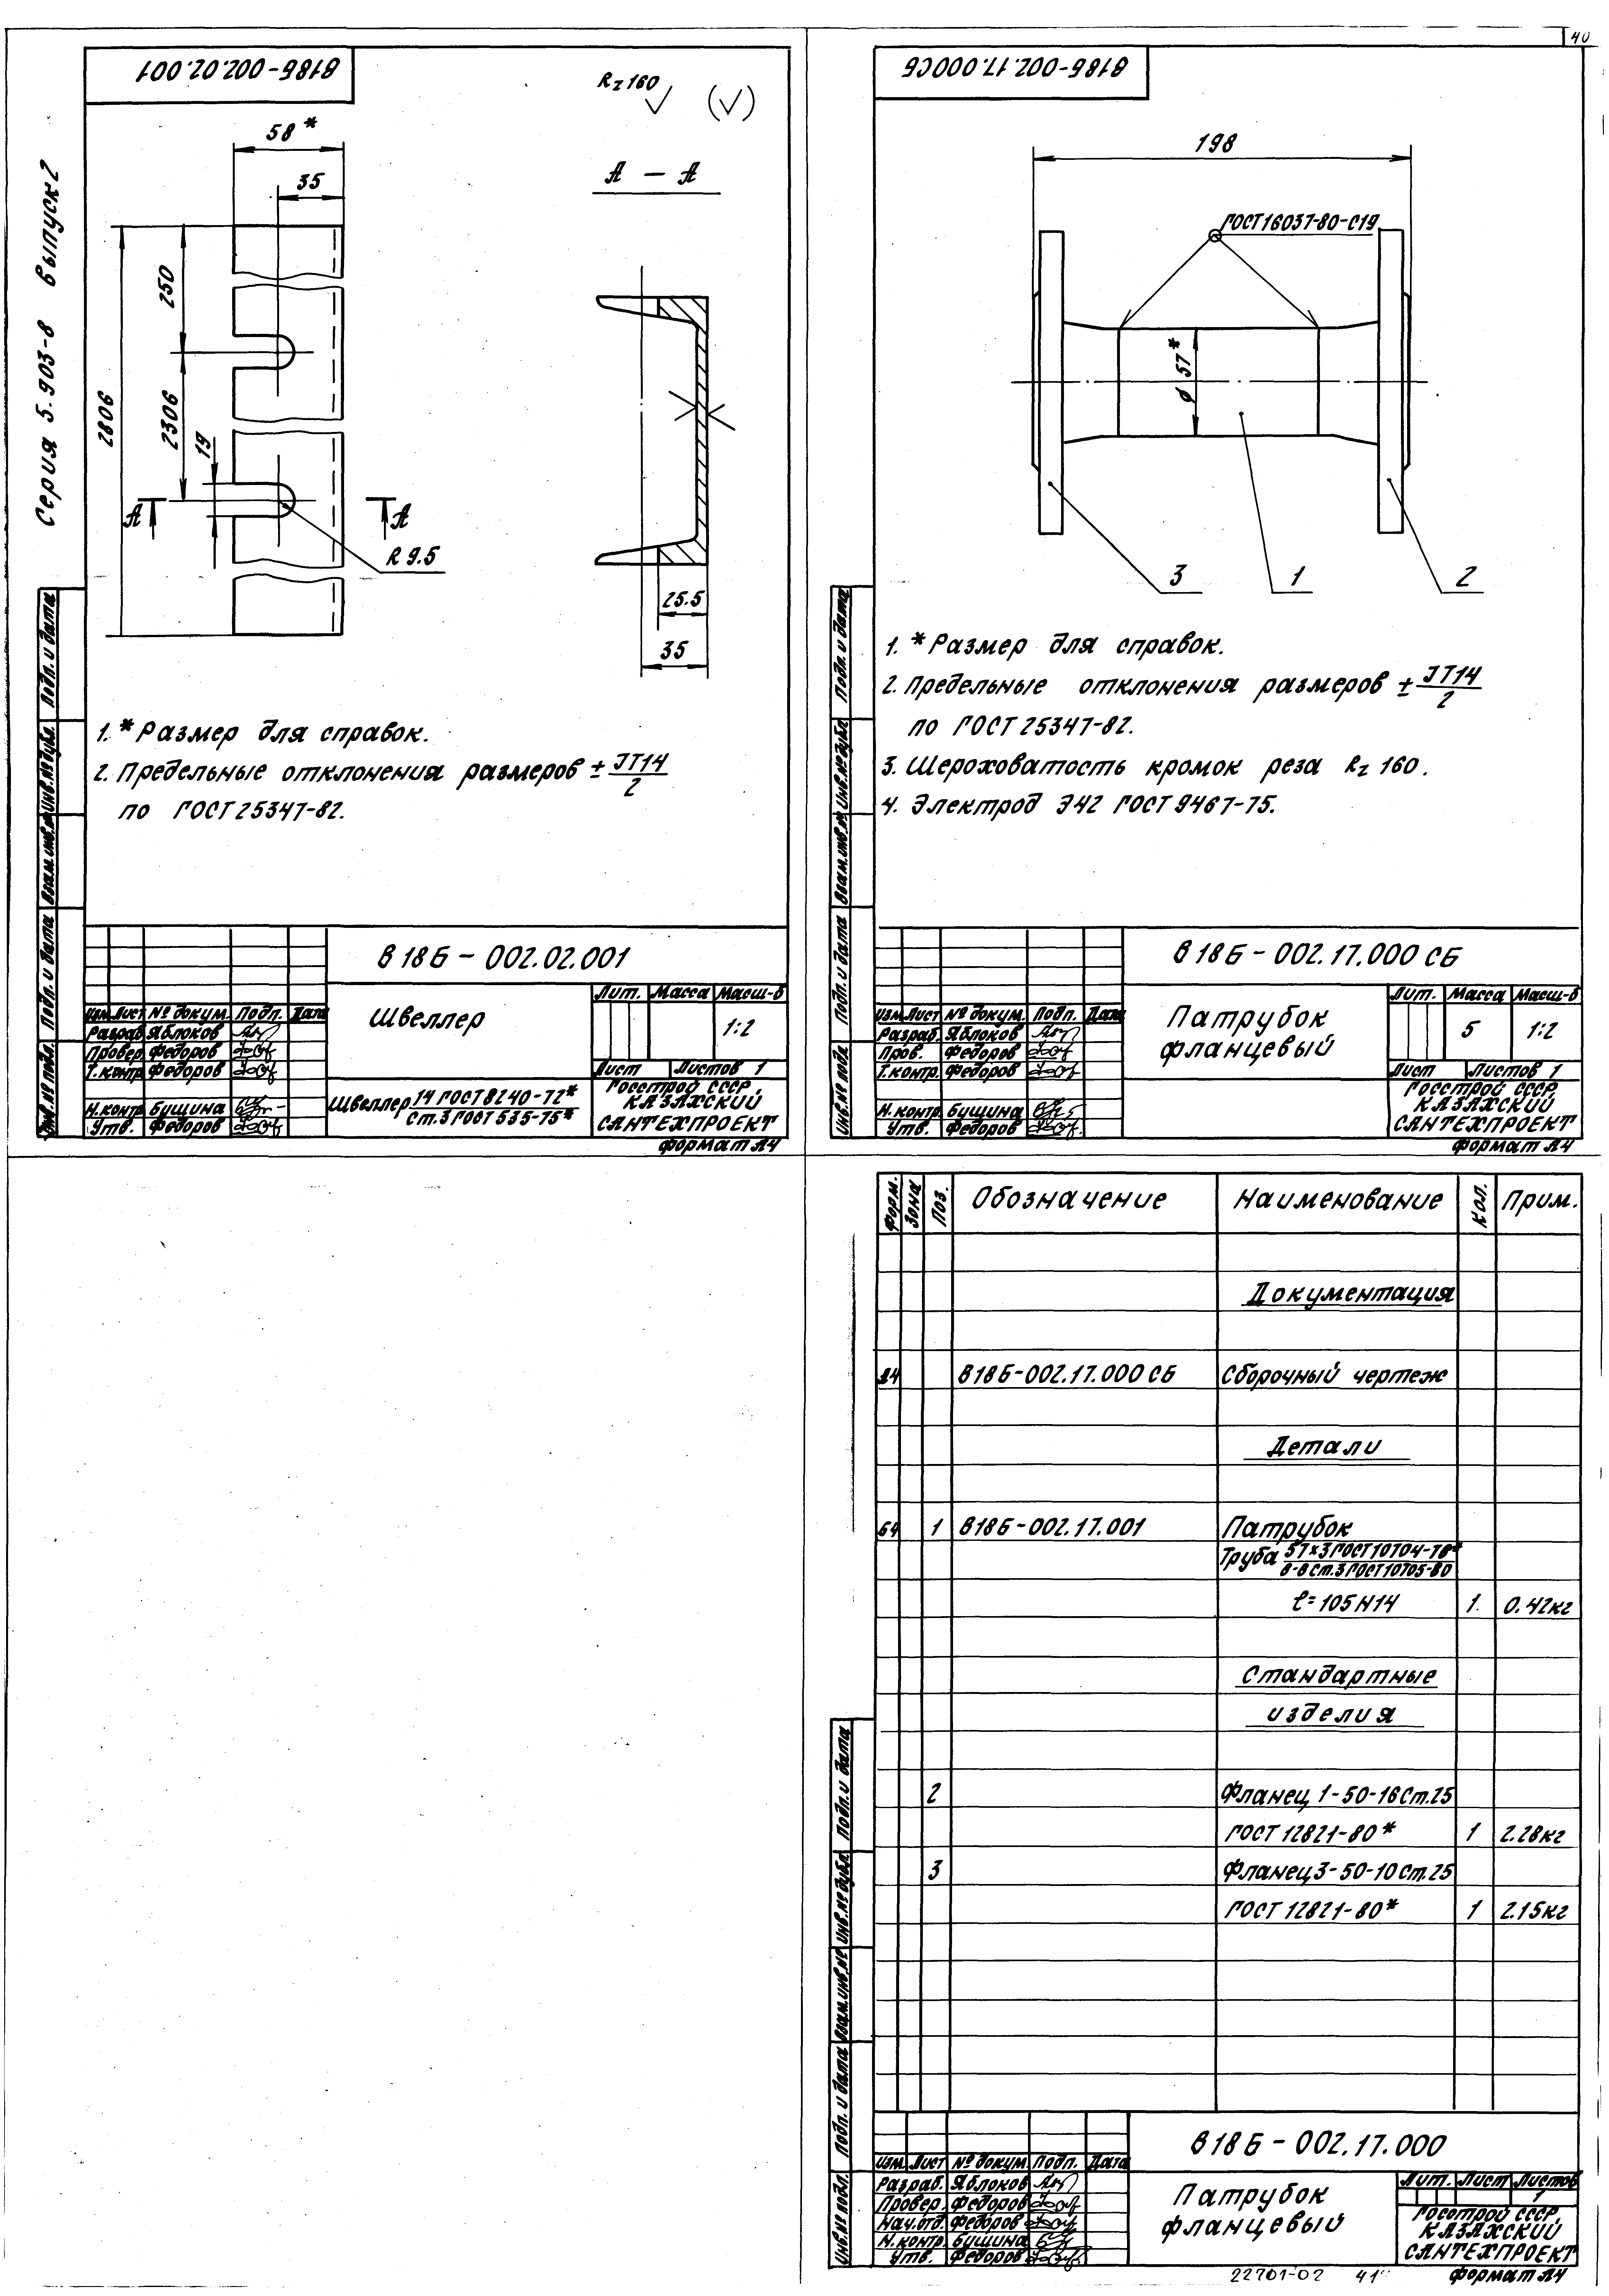 40
Серия 5.903-8 выпуск 2
В18Б-002.02.001
Rz 160
58*
35
А – А
250
2306
2806
19
А
А
R 9.5
25.5
35
1. * Размер для справок.
2. Предельные отклонения размеров ± JT14/2
по ГОСТ 25347-82.
Инв.№ подл. Подп. и дата Взам.инв.№ Инв.№ дубл. Подп. и дата
В18Б – 002.02.001
Изм. Лист № докум. Подп. Дата
Разраб. Яблоков
Провер. Федоров
Т.контр. Федоров
Н.контр. Бущина
Утв. Федоров
Швеллер
Лит. Масса Масш-б
1:2
Лист Листов 1
Швеллер 14 ГОСТ 8240-72*
ст.3 ГОСТ 535-75*
Госстрой СССР,
КАЗАХСКИЙ
САНТЕХПРОЕКТ
формат А4
В18Б-002.17.000СБ
198
ГОСТ 16037-80-С19
ϕ 57*
3
1
2
1. * Размер для справок.
2. Предельные отклонения размеров ± JT14/2
по ГОСТ 25347-82.
3. Шероховатость кромок реза Rz 160.
4. Электрод Э42 ГОСТ 9467-75.
Инв.№ подл. Подп. и дата Взам.инв.№ Инв.№ дубл. Подп. и дата
В18Б – 002.17.000 СБ
Изм. Лист № докум. Подп. Дата
Разраб. Яблоков
Пров. Федоров
Т.контр. Федоров
Н.контр. Бущина
Утв. Федоров
Патрубок
фланцевый
Лит. Масса Масш-б
5 1:2
Лист Листов 1
Госстрой СССР,
КАЗАХСКИЙ
САНТЕХПРОЕКТ
формат А4
Форм. Зона Поз. Обозначение Наименование Кол. Прим.
Документация
А4 В18Б-002.17.000 СБ Сборочный чертеж
Детали
Б4 1 В18Б-002.17.001 Патрубок
Труба 57×3 ГОСТ 10704-76*
В-В ст.3 ГОСТ 10705-80
ℓ=105 H14 1. 0.42кг
Стандартные
изделия
2 Фланец 1-50-16 Ст.25
ГОСТ 12821-80* 1 2.28кг
3 Фланец 3-50-10 Ст.25
ГОСТ 12821-80* 1 2.15кг
Инв.№ подл. Подп. и дата Взам.инв.№ Инв.№ дубл. Подп. и дата
В18Б – 002.17.000
Изм. Лист № докум. Подп. Дата
Разраб. Яблоков
Провер. Федоров
Нач.отд. Федоров
Н.контр. Бущина
Утв. Федоров
Патрубок
фланцевый
Лит. Лист Листов
1
Госстрой СССР,
КАЗАХСКИЙ
САНТЕХПРОЕКТ
22701-02 41
формат А4